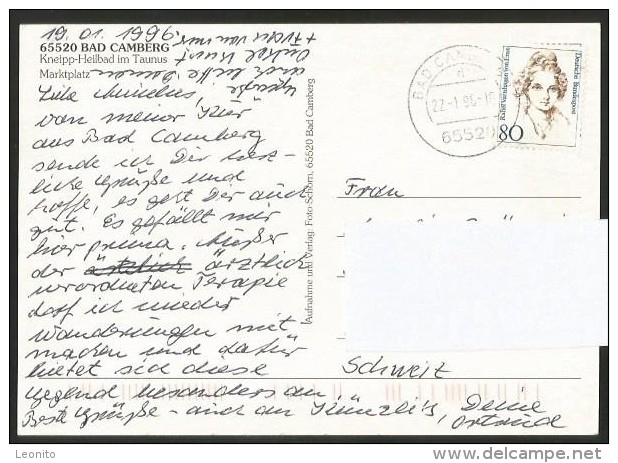 19.01.1996.
65520 BAD CAMBERG
Kneipp-Heilbad im Taunus
Marktplatz
von meiner Kur
aus Bad Camberg
sende ich Dir herz-
liche Grüße und
hoffe, es geht Dir auch
gut. Es gefällt mir
hier prima. Außer
der ärztlich ärztlich
verordneten Terapie
darf ich wieder
wanderungen mit
machen und dafür
bietet sich diese
Gegend besonders an.
Beste Grüße - auch an Künzli's, Deine
Ortrud
Aufnahme und Verlag: Foto-Schorn, 65520 Bad Camberg
BAD CAM
22-1.96-1
65520
Deutsche Bundespost
Rahel Varnhagen von Ense
80
Frau
Schweiz
Leonito
www.delcampe.net